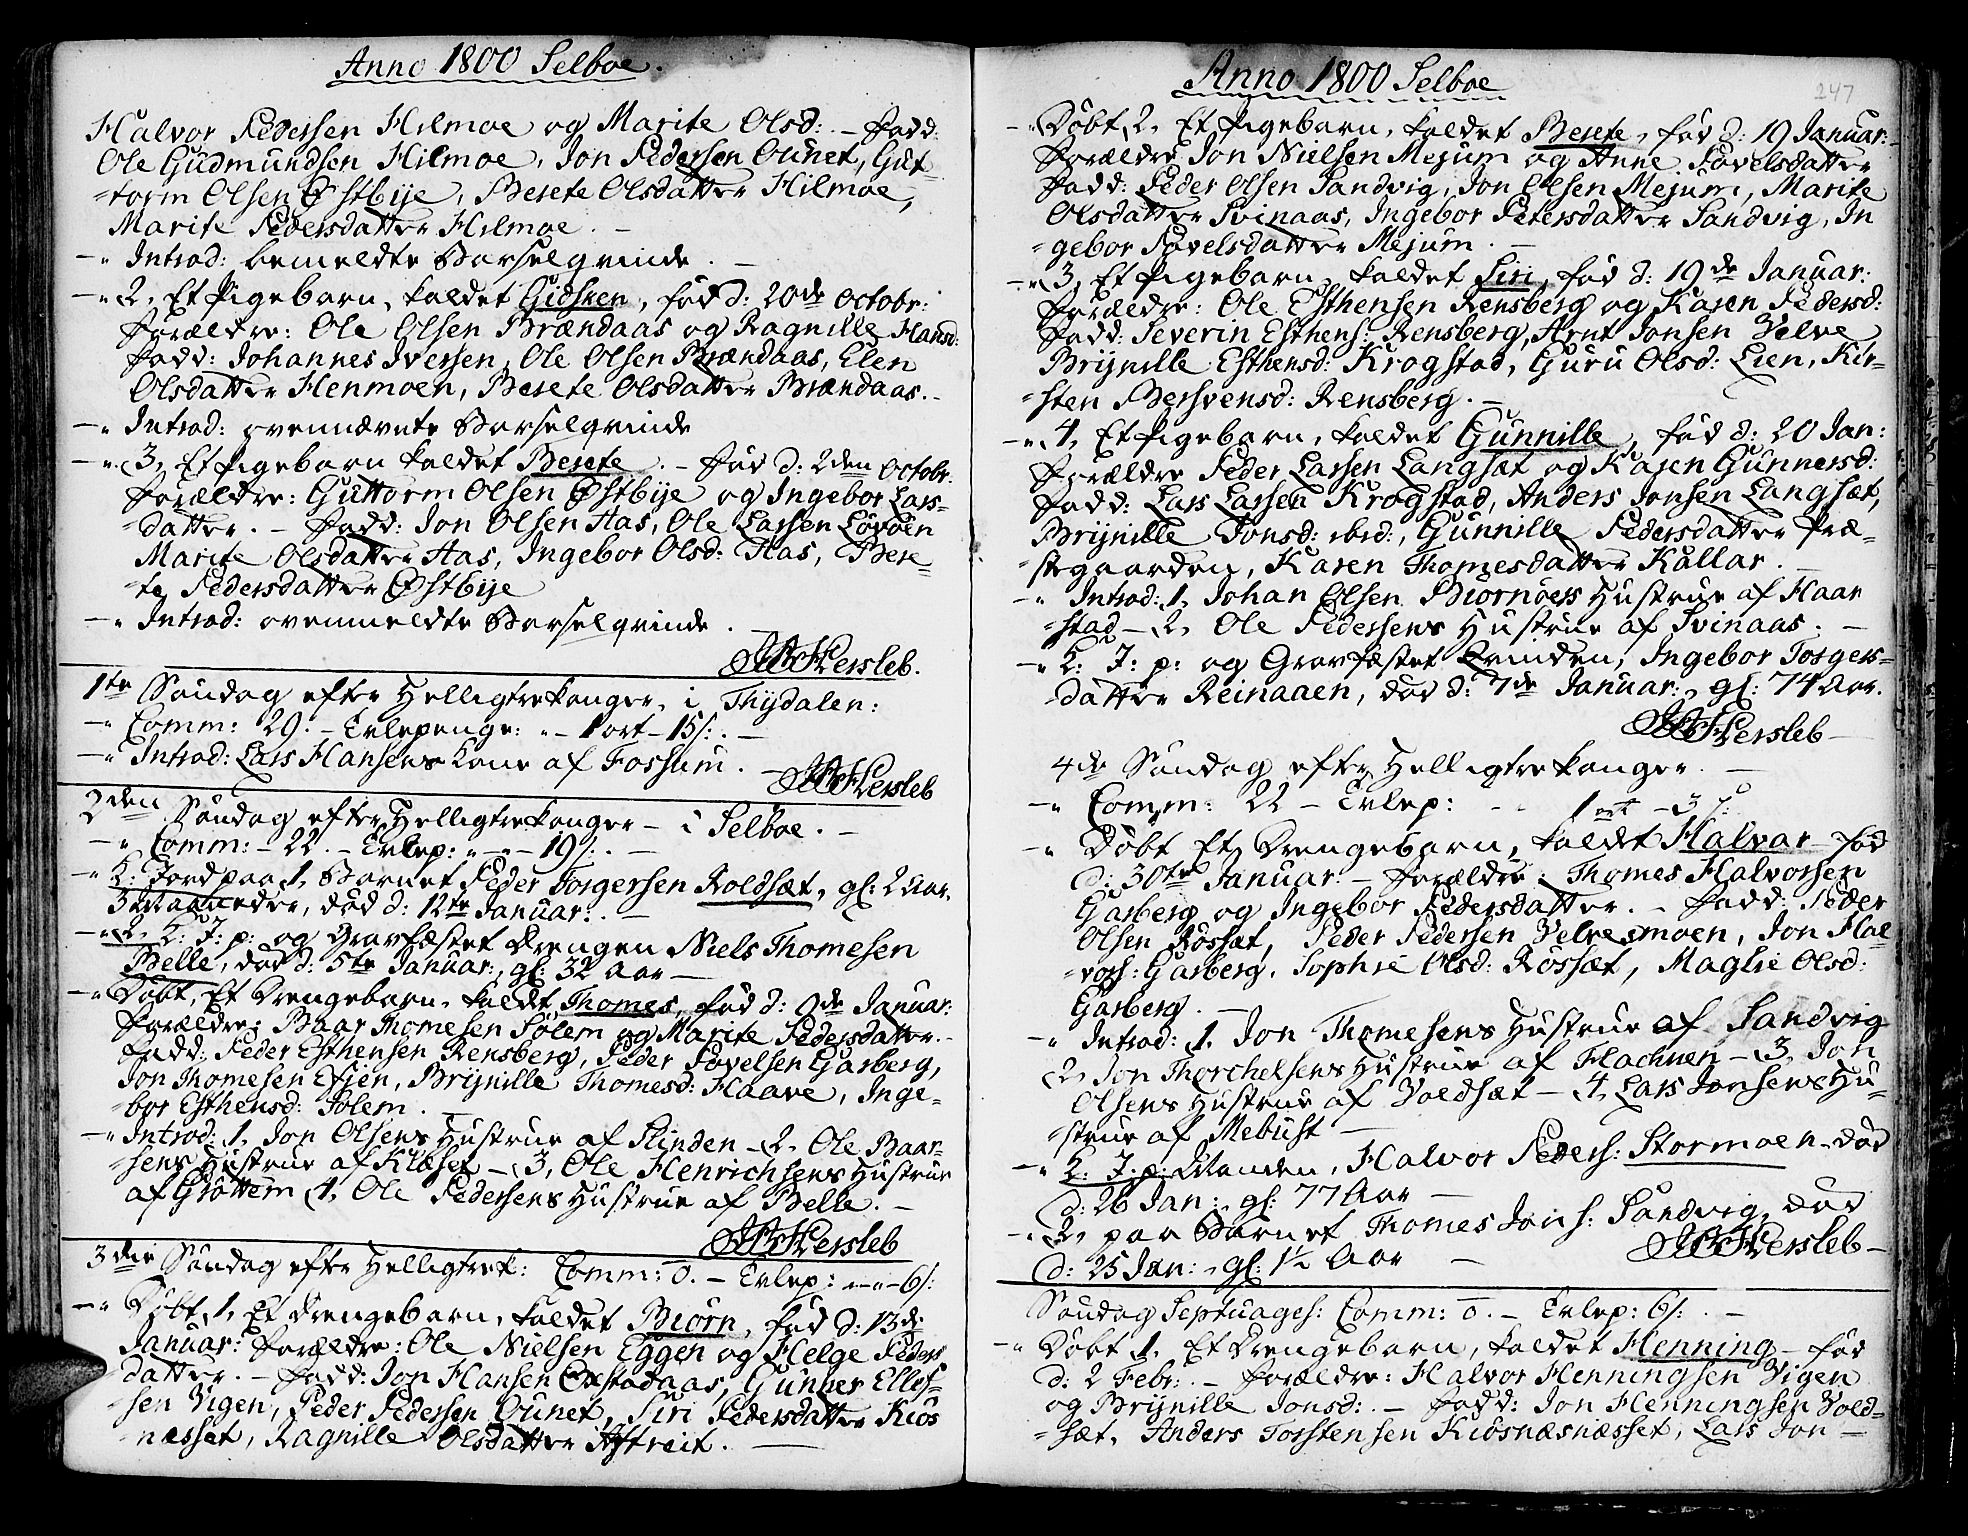 Anno 1800 Selboe.
Halvor Pedersen Hilmoe og Marite Olsd: - Fadd:
Ole Gudmundsen Hilmoe, Jon Pedersen Ounet, Gut
-torm Olsen Østbye, Berete Olsdatter Hilmoe,
Marite Pedersdatter Hilmoe. -
-" Introd: bemeldte Barselqvinde. -
-" 2, Et Pigebarn, kaldet Gidsken, fød d: 20de Octobr:
Forældre: Ole Olsen Brændaas og Ragnille Hansd:
Fadd: Johannes Iversen, Ole Olsen Brændaas, Elen
Olsdatter Henmoen, Berete Olsdatter Brændaas. -
-" Introd: ovennævnte Barselqvinde
-" 3, Et Pigebarn kaldet Berete. - fød d: 2den Octobr:
Forældre: Guttorm Olsen Østbye og Ingebor Lars-
-datter. - Fadd: Jon Olsen Aas, Ole Larsen Løvøen
Marite Olsdatter Aas, Ingebor Olsd: Aas, Bere-
-te Pedersdatter Østbye
-" Introd: ovenmeldte Barselqvinde. -
JBHersleb.
1te Søndag efter Helligtrekonger, i Thydalen:
-" Comm: 29. - Evlepenge: "- 1 ort - 15 s:. -
-" Introd: Lars Hansens Kone af Fossum. -
JBHersleb
2den Søndag efter Helligtrekonger - i Selboe. -
-" Comm: - 22. - Evlep: " - " - 19 s:. -
-" K: Jord paa 1, Barnet Peder Torgersen Roldsæt, gl: 2 Aar,
3 Maaneder, død d: 12te Januar:. -
-" 2, K: J: p: og Gravfæstet Drengen Niels Thomesen
Belle, død d: 5te Januar:, gl: 32 Aar -
-" Døbt, Et Drengebarn, kaldt Thomes, fød d: 9de Januar:
Forældre: Baar Thomesen Solem og Marite Pedersdatter. -
Fadd: Peder Esthensen Rensberg, Peder Povelsen Garberg,
Jon Thomesen Evjen, Brynille Thomesd: Haave, Inge-
-bor Esthensd: Solem. -
-" Introd: 1, Jon Olsens Hustrue af Slinden - 2, Ole Baar-
-sens Hustrue af Kilset - 3, Ole Henrichsens Hustrue
af Grøttem 4, Ole Pedersens Hustrue af Belle. -
JBHersleb
3die Søndag efter Helligtrek: Comm: 0. - Evlep: "-" - 6 s:
-" Døbt 1, Et Drengebarn, kaldet Biørn, fød d: 13de
Januar: Forældre: Ole Nielsen Eggen og Helge Peders
datter. - Fadd: Jon Hansen Qustadaas, Gunner Ellef-
-sen Vigen, Peder Pedersen Ounet, Siri Pedersdatter Kiøs
-næsset, Ragnille Olsdatter Aftreit. -
Anno 1800 Selboe
247
-" Døbt 2, Et Pigebarn, kaldet Berete, fød d: 19 Januar:
Forældre Jon Nielsen Mejum og Anne Povelsdatter
Fadd: Peder Olsen Sandvig, Jon Olsen Mejum, Marite
Olsdatter Svinaas, Ingebor Petersdatter Sandvig, In
-gebor Povelsdatter Mejum. -
-" 3, Et Pigebarn, kaldet Siri, fød d: 19de Januar:
Forældre: Ole Esthensen Rensberg og Karen Pedersd:
Fadd: Severin Esthens: Rensberg, Arnt Jonsen Velve,
Brynille Esthensd: Krogstad, Guru Olsd: Lien, Kir-
-sten Bersvensd: Rensberg. -
-" 4, Et Pigebarn, kaldet Gunnille, fød d: 20 Jan:
Forældre Peder Larsen Langsæt og Karen Gunnersd:
Fadd: Lars Larsen Krogstad, Anders Jonsen Langsæt,
Brynille Jonsd: ibid:, Gunnille Pedersdatter Præ-
-stegaarden, Karen Thomesdatter Kallar. -
-" Introd: 1, Johan Olsen Biørnøers Hustrue af Haar
-stad - 2, Ole Pedersens Hustrue af Svinaas. -
-" K: J: p: og Gravfæstet Qvinden, Ingebor Torgers-
-datter Reinaaen, død d: 7de Januar:, gl: 74 Aar.
JBHersleb -
4de Søndag efter Helligtrekonger. -
-" Comm: 22 - Evlep: - 1 ort - 3 s:
-" Døbt Et Drengebarn, kaldet Halvor - fød
d: 30te Januar. - Forældre: Thomes Halvorsen
Garberg og Ingebor Pedersdatter. - Fadd: Peder
Olsen Rosset, Peder Pedersen Velvesmoen, Jon Hal
-vors: Garberg, Sophie Olsd: Rosset, Maglie Olsd:
Garberg. -
-" Introd: 1, Jon Thomesens Hustrue af Sandvig
2, Jon Thorchelsens Hustrue af Flachnen - 3, Jon
Olsens Hustrue af Voldsæt - 4, Lars Jonsens Hu-
-strue af Mebust -
-" K: J: p: Manden, Halvor Peders: Stormoen, død
d: 26 Jan:, gl: 77 Aar -
-" 2, paa Barnet Thomes Jons: Sandvig, død
d: 25 Jan:, gl: 1½ Aar -
JBHersleb -
Søndag Septuages: Comm: 0. - Evlep: 6 s:. -
-" Døbt 1, Et Drengebarn, kaldet Henning - fød
d: 2 Febr:. - Forældre: Halvor Henningsen Vigen
og Brynille Jonsd:. - Fadd: Jon Henningsen Vold-
-sæt, Anders Torstensen Kiøsnæsnæsset, Lars Jon -